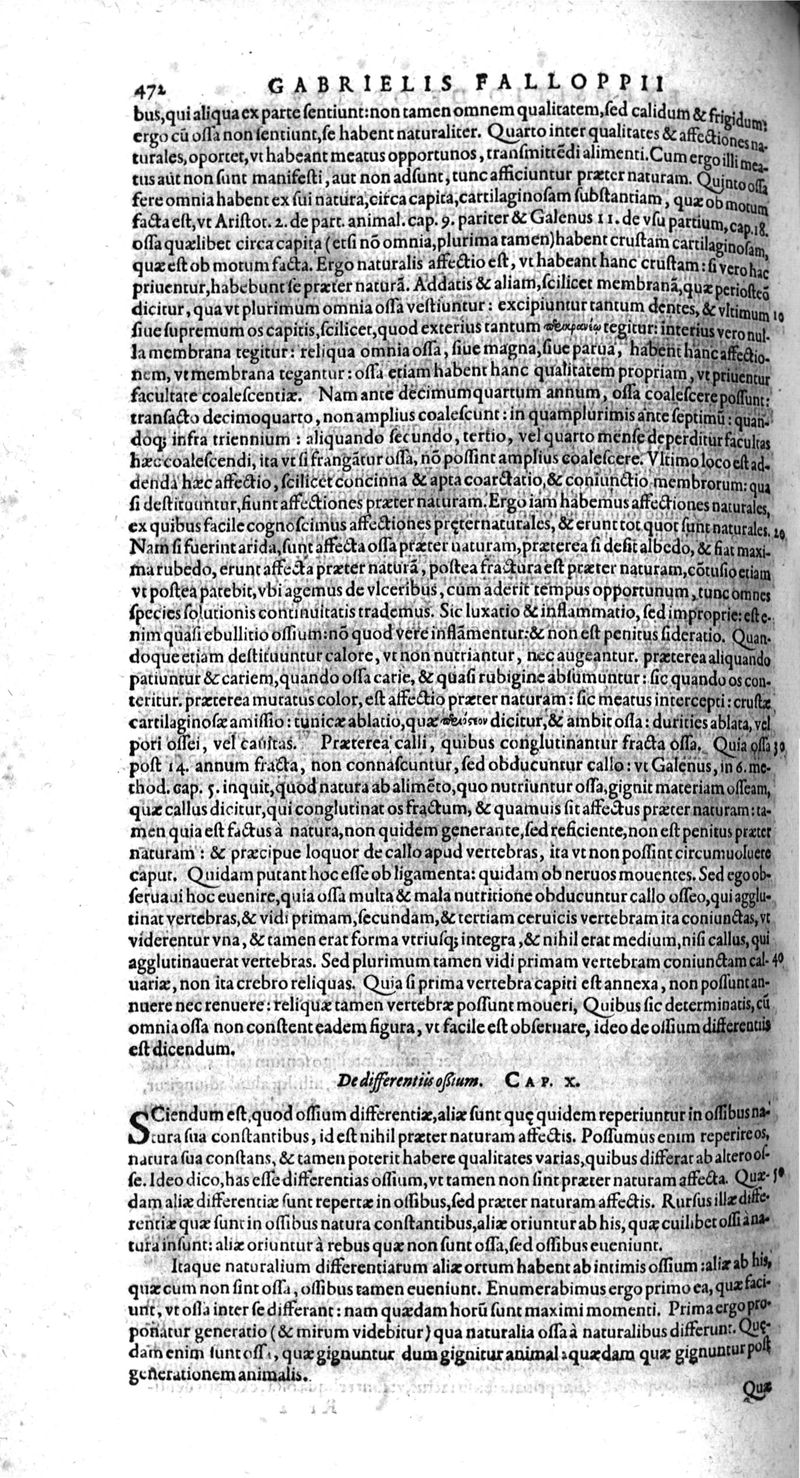 472 GABRIELIS FALLOPPII
bus,qui aliqua ex parte ſentiunt:non tamen omnem qualitatem,ſed calidum & frigidum:
ergo cū oſſa non ſentiunt,ſe habent naturaliter. Quarto inter qualitates & affectiones na-
turales,oportet,vt habeant meatus opportunos, tranſmittēdi alimenti.Cum ergo illi mea-
tus aut non ſunt manifeſti, aut non adſunt, tunc afficiuntur præter naturam. Quinto oſſa
fere omnia habent ex ſui natura,circa capita,cartilaginoſam ſubſtantiam, quæ ob motum
facta eſt,vt Ariſtot. 2. de part. animal. cap. 9. pariter & Galenus 11. de vſu partium, cap.18.
oſſa quælibet circa capita (etſi nō omnia,plurima tamen)habent cruſtam cartilaginoſam,
quæ eſt ob motum facta. Ergo naturalis affectio eſt, vt habeant hanc cruſtam: ſi vero hac
priuentur,habebunt ſe præter naturā. Addatis & aliam,ſcilicet membranā,quæ perioſteō
dicitur, qua vt plurimum omnia oſſa veſtiuntur: excipiuntur tantum dentes, & vltimum 10
ſiue ſupremum os capitis,ſcilicet,quod exterius tantum tegitur: interius vero nul-
la membrana tegitur: reliqua omnia oſſa, ſiue magna,ſiue parua, habent hanc affectio-
nem, vt membrana tegantur: oſſa etiam habent hanc qualitatem propriam, vt priuentur
facultate coaleſcentiæ. Nam ante decimumquartum annum, oſſa coaleſcere poſſunt:
tranſacto decimoquarto, non amplius coaleſcunt: in quamplurimis ante ſeptimū: quan-
doq; infra triennium : aliquando ſecundo, tertio, vel quarto menſe deperditur facultas
hæc coaleſcendi, ita vt ſi frangātur oſſa, nō poſſint amplius coaleſcere. Vltimo loco eſt ad-
denda hæc affectio, ſcilicet concinna & apta coarctatio,& coniunctio membrorum: qua
ſi deſtituuntur,fiunt affectiones præter naturam.Ergo iam habemus affectiones naturales,
ex quibus facile cognoſcimus affectiones pręternaturales, & erunt tot quot ſunt naturales. 20
Nam ſi fuerint arida, ſunt affecta oſſa præter naturam,præterea ſi deſit albedo, & fiat maxi-
ma rubedo, erunt affecta præter naturā, poſtea fractura eſt præter naturam,cōtuſio etiam
vt poſtea patebit, vbi agemus de vlceribus, cum aderit tempus opportunum, tunc omnes
ſpecies ſolutionis continuitatis trademus. Sic luxatio & inflammatio, ſed improprie: eſt e-
nim quaſi ebullitio oſſium: nō quod vere inflāmentur: & non eſt penitus ſideratio. Quan-
doque etiam deſtituuntur calore, vt non nutriantur, nec augeantur. præterea aliquando
patiuntur & cariem, quando oſſa carie, & quaſi rubigine abſumuntur: ſic quando os con-
teritur. præterea mutatus color, eſt affectio præter naturam: ſic meatus intercepti: cruſtæ
cartilaginoſæ amiſſio: tunicæ ablatio,quæ dicitur, & ambit oſſa: durities ablata, vel
pori oſſei, vel cauitas. Præterea calli, quibus conglutinantur fracta oſſa. Quia oſſa 30
poſt 14. annum fracta, non connaſcuntur, ſed obducuntur callo: vt Galenus, in 6. me-
thod. cap. 5. inquit, quod natura ab alimēto, quo nutriuntur oſſa, gignit materiam oſſeam,
quæ callus dicitur, qui conglutinat os fractum, & quamuis ſit affectus præter naturam: ta-
men quia eſt factus à natura, non quidem generante,ſed reficiente, non eſt penitus præter
naturam : & præcipue loquor de callo apud vertebras, ita vt non poſſint circumuoluere
caput. Quidam putant hoc eſſe ob ligamenta: quidam ob neruos mouentes. Sed ego ob-
ſeruaui hoc euenire, quia oſſa multa & mala nutritione obducuntur callo oſſeo, qui agglu-
tinat vertebras, & vidi primam, ſecundam,& tertiam ceruicis vertebram ita coniunctas, vt
viderentur vna, & tamen erat forma vtriuſq; integra , & nihil erat medium, niſi callus, qui
agglutinauerat vertebras. Sed plurimum tamen vidi primam vertebram coniunctam cal- 40
uariæ, non ita crebro reliquas. Quia ſi prima vertebra capiti eſt annexa, non poſſunt an-
nuere nec renuere: reliquæ tamen vertebræ poſſunt moueri, Quibus ſic determinatis, cū
omnia oſſa non conſtent eadem figura, vt facile eſt obſeruare, ideo de oſſium differentiis
eſt dicendum.
De differentiis oſsium. CAP. X.
SCiendum eſt, quod oſſium differentiæ, aliæ ſunt quę quidem reperiuntur in oſſibus na-
tura ſua conſtantibus, id eſt nihil præter naturam affectis. Poſſumus enim reperire os,
natura ſua conſtans, & tamen poterit habere qualitates varias, quibus differat ab altero oſ-
ſe. Ideo dico, has eſſe differentias oſſium, vt tamen non ſint præter naturam affecta. Quæ- 50
dam aliæ differentiæ ſunt repertæ in oſſibus, ſed præter naturam affectis. Rurſus illæ diffe-
rentiæ quæ ſunt in oſſibus natura conſtantibus,aliæ oriuntur ab his, quæ cuilibet oſſi à na-
tura inſunt: aliæ oriuntur à rebus quæ non ſunt oſſa, ſed oſſibus eueniunt.
Itaque naturalium differentiarum aliæ ortum habent ab intimis oſſium :aliæ ab his,
quæ cum non ſint oſſa, oſſibus tamen eueniunt. Enumerabimus ergo primo ea, quæ faci-
unt, vt oſſa inter ſe differant: nam quædam horū ſunt maximi momenti. Prima ergo pro-
ponatur generatio (& mirum videbitur) qua naturalia oſſa à naturalibus differunt. Quę-
dam enim ſunt oſſa, quæ gignuntur dum gignitur animal: quædam quæ gignuntur poſt
generationem animalis.
Quæ